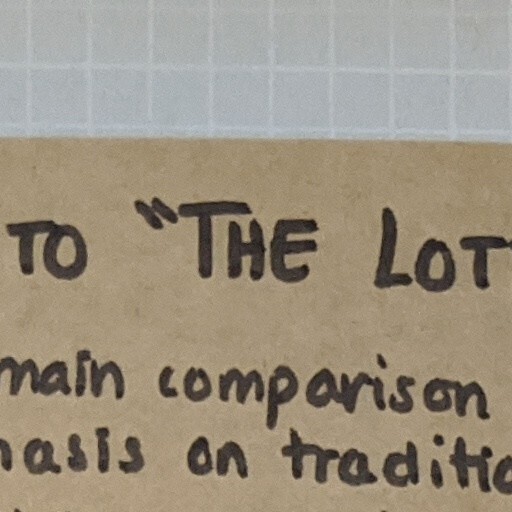 TO "THE LOT
main comparison
hasis on traditio